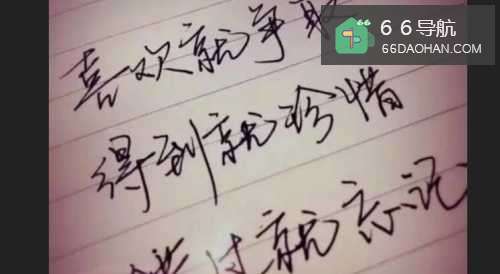 66导航
66DAOHAN.COM
喜欢就争取
得到就珍惜
错过就忘记